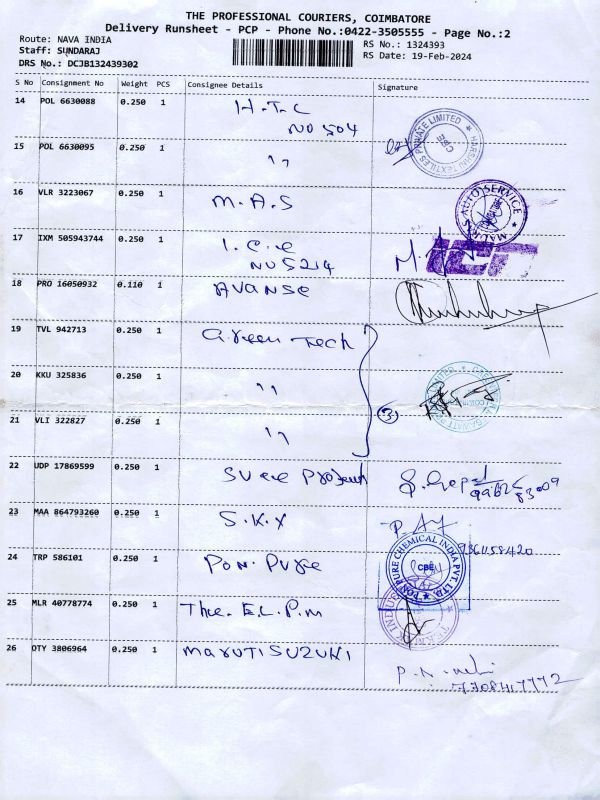 THE PROFESSIONAL COURIERS, COIMBATORE
Delivery Runsheet - PCP - Phone No.:0422-3505555 - Page No.:2
Route: NAVA INDIA
RS No.: 1324393
Staff: SUNDARAJ
RS Date: 19-Feb-2024
DRS No.: DCJB132439302
S No Consignment No Weight PCS Consignee Details Signature
14 POL 6630088 0.250 1 H.T.C
NO 504
15 POL 6630095 0.250 1 ,,
PRIVATE LIMITED
TEXTILES
CBE
16 VLR 3223067 0.250 1 M.A.S
AUTO SERVICE
17 IXM 505943744 0.250 1 I.C.E
NO 5214
18 PRO 16050932 0.110 1 AVANSE
19 TVL 942713 0.250 1 Green Tech
20 KKU 325836 0.250 1 ,,
3
21 VLI 322827 0.250 1 ,,
22 UDP 17869599 0.250 1
23 MAA 864793260 0.250 1 S.K.Y
24 TRP 586101 0.250 1 PON. PURE
PON PURE CHEMICAL INDIA PVT. LTD.
CBE
25 MLR 40778774 0.250 1 The. E.L.P.M
26 OTY 3806964 0.250 1 MARUTI SUZUKI
7708417772